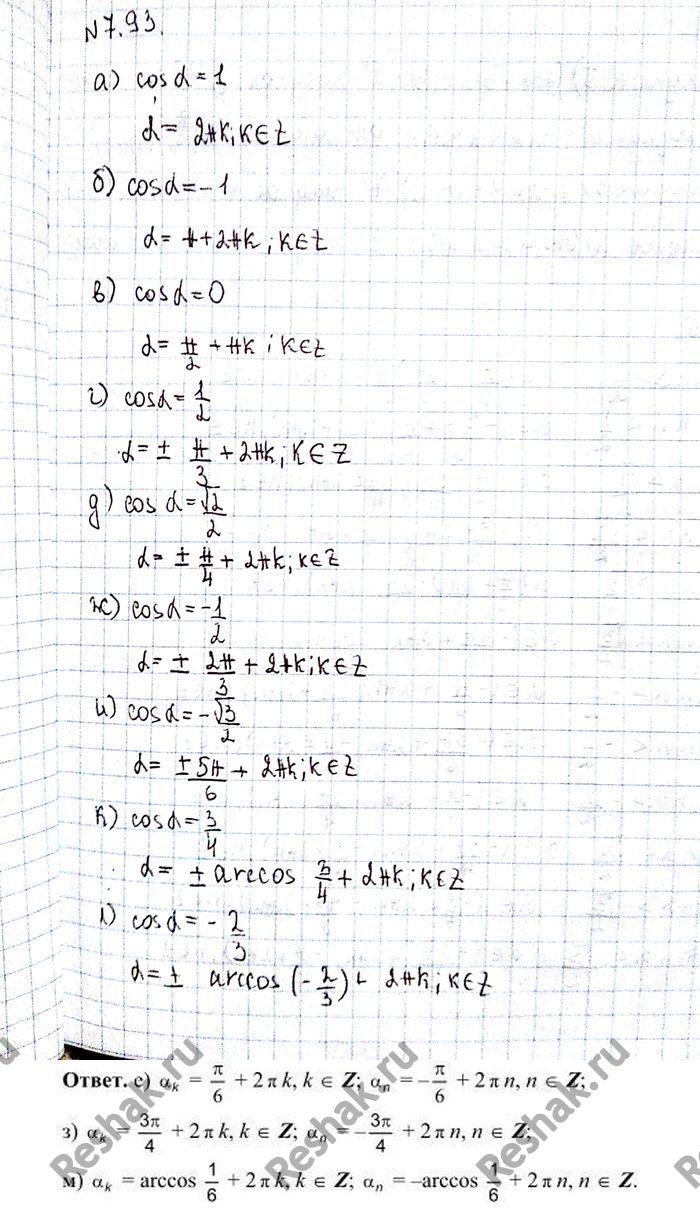 N 7.93.
а) cos α = 1
α = 2πk; k ∈ Z
б) cos α = -1
α = π + 2πk; k ∈ Z
в) cos α = 0
α = π/2 + πk; k ∈ Z
г) cos α = 1/2
α = ± π/3 + 2πk; k ∈ Z
д) cos α = √2/2
α = ± π/4 + 2πk; k ∈ Z
ж) cos α = -1/2
α = ± 2π/3 + 2πk; k ∈ Z
и) cos α = -√3/2
α = ± 5π/6 + 2πk; k ∈ Z
к) cos α = 3/4
α = ± arccos 3/4 + 2πk; k ∈ Z
л) cos α = - 2/3
α = ± arccos (-2/3) + 2πk; k ∈ Z
Ответ. е) αₖ = π/6 + 2πk, k ∈ Z; αₙ = -π/6 + 2πn, n ∈ Z;
з) αₖ = 3π/4 + 2πk, k ∈ Z; αₙ = -3π/4 + 2πn, n ∈ Z;
м) αₖ = arccos 1/6 + 2πk, k ∈ Z; αₙ = -arccos 1/6 + 2πn, n ∈ Z.
Reshak.ru
Reshak.ru
Reshak.ru